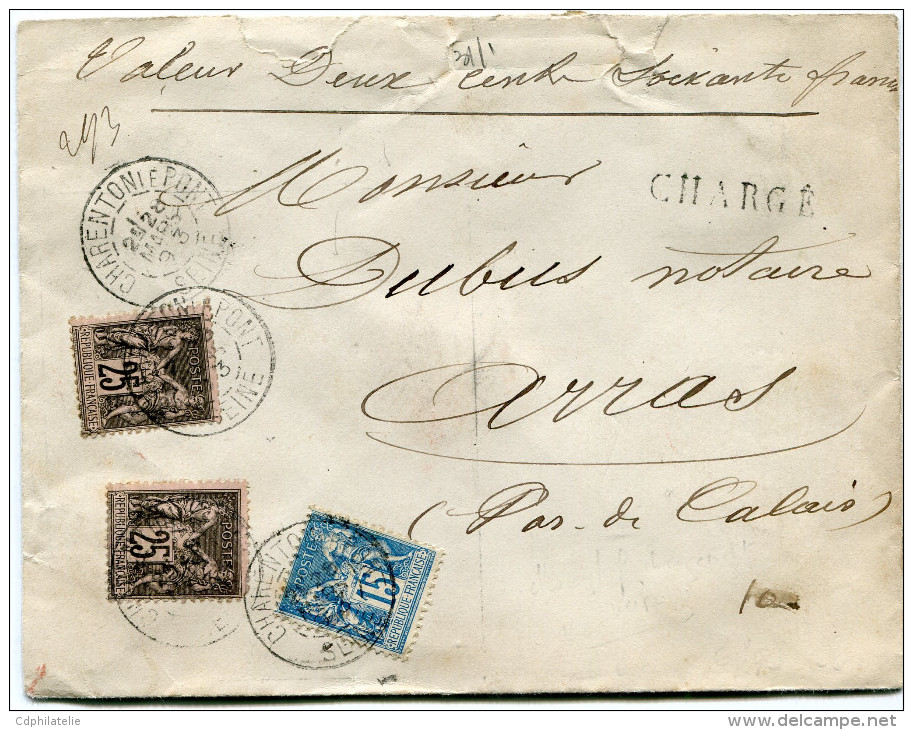 Valeur Deux cents Soixante francs
293
CHARGÉ
Monsieur
Dubus notaire
Arras
(Pas-de Calais)
CHARENTON LE PONT
SEINE
PONT
SEINE
POSTES
25
REPUBLIQUE FRANÇAISE
POSTES
25
REPUBLIQUE FRANÇAISE
CHARENTON
POSTES
15
REPUBLIQUE FRANÇAISE
10
Cdphilatelie
www.delcampe.net